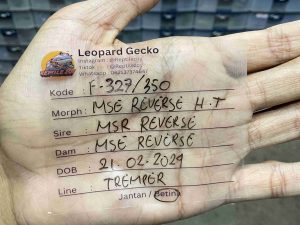 Leopard Gecko
Instagram
Tiktok
Whatsapp
Kode : F-327/350
Morph : MSE REVERSE H.T
Sire : MSR REVERSE
Dam : MSE REVERSE
DOB : 21-02-2029
Line : TREMPER
Jantan / Betina